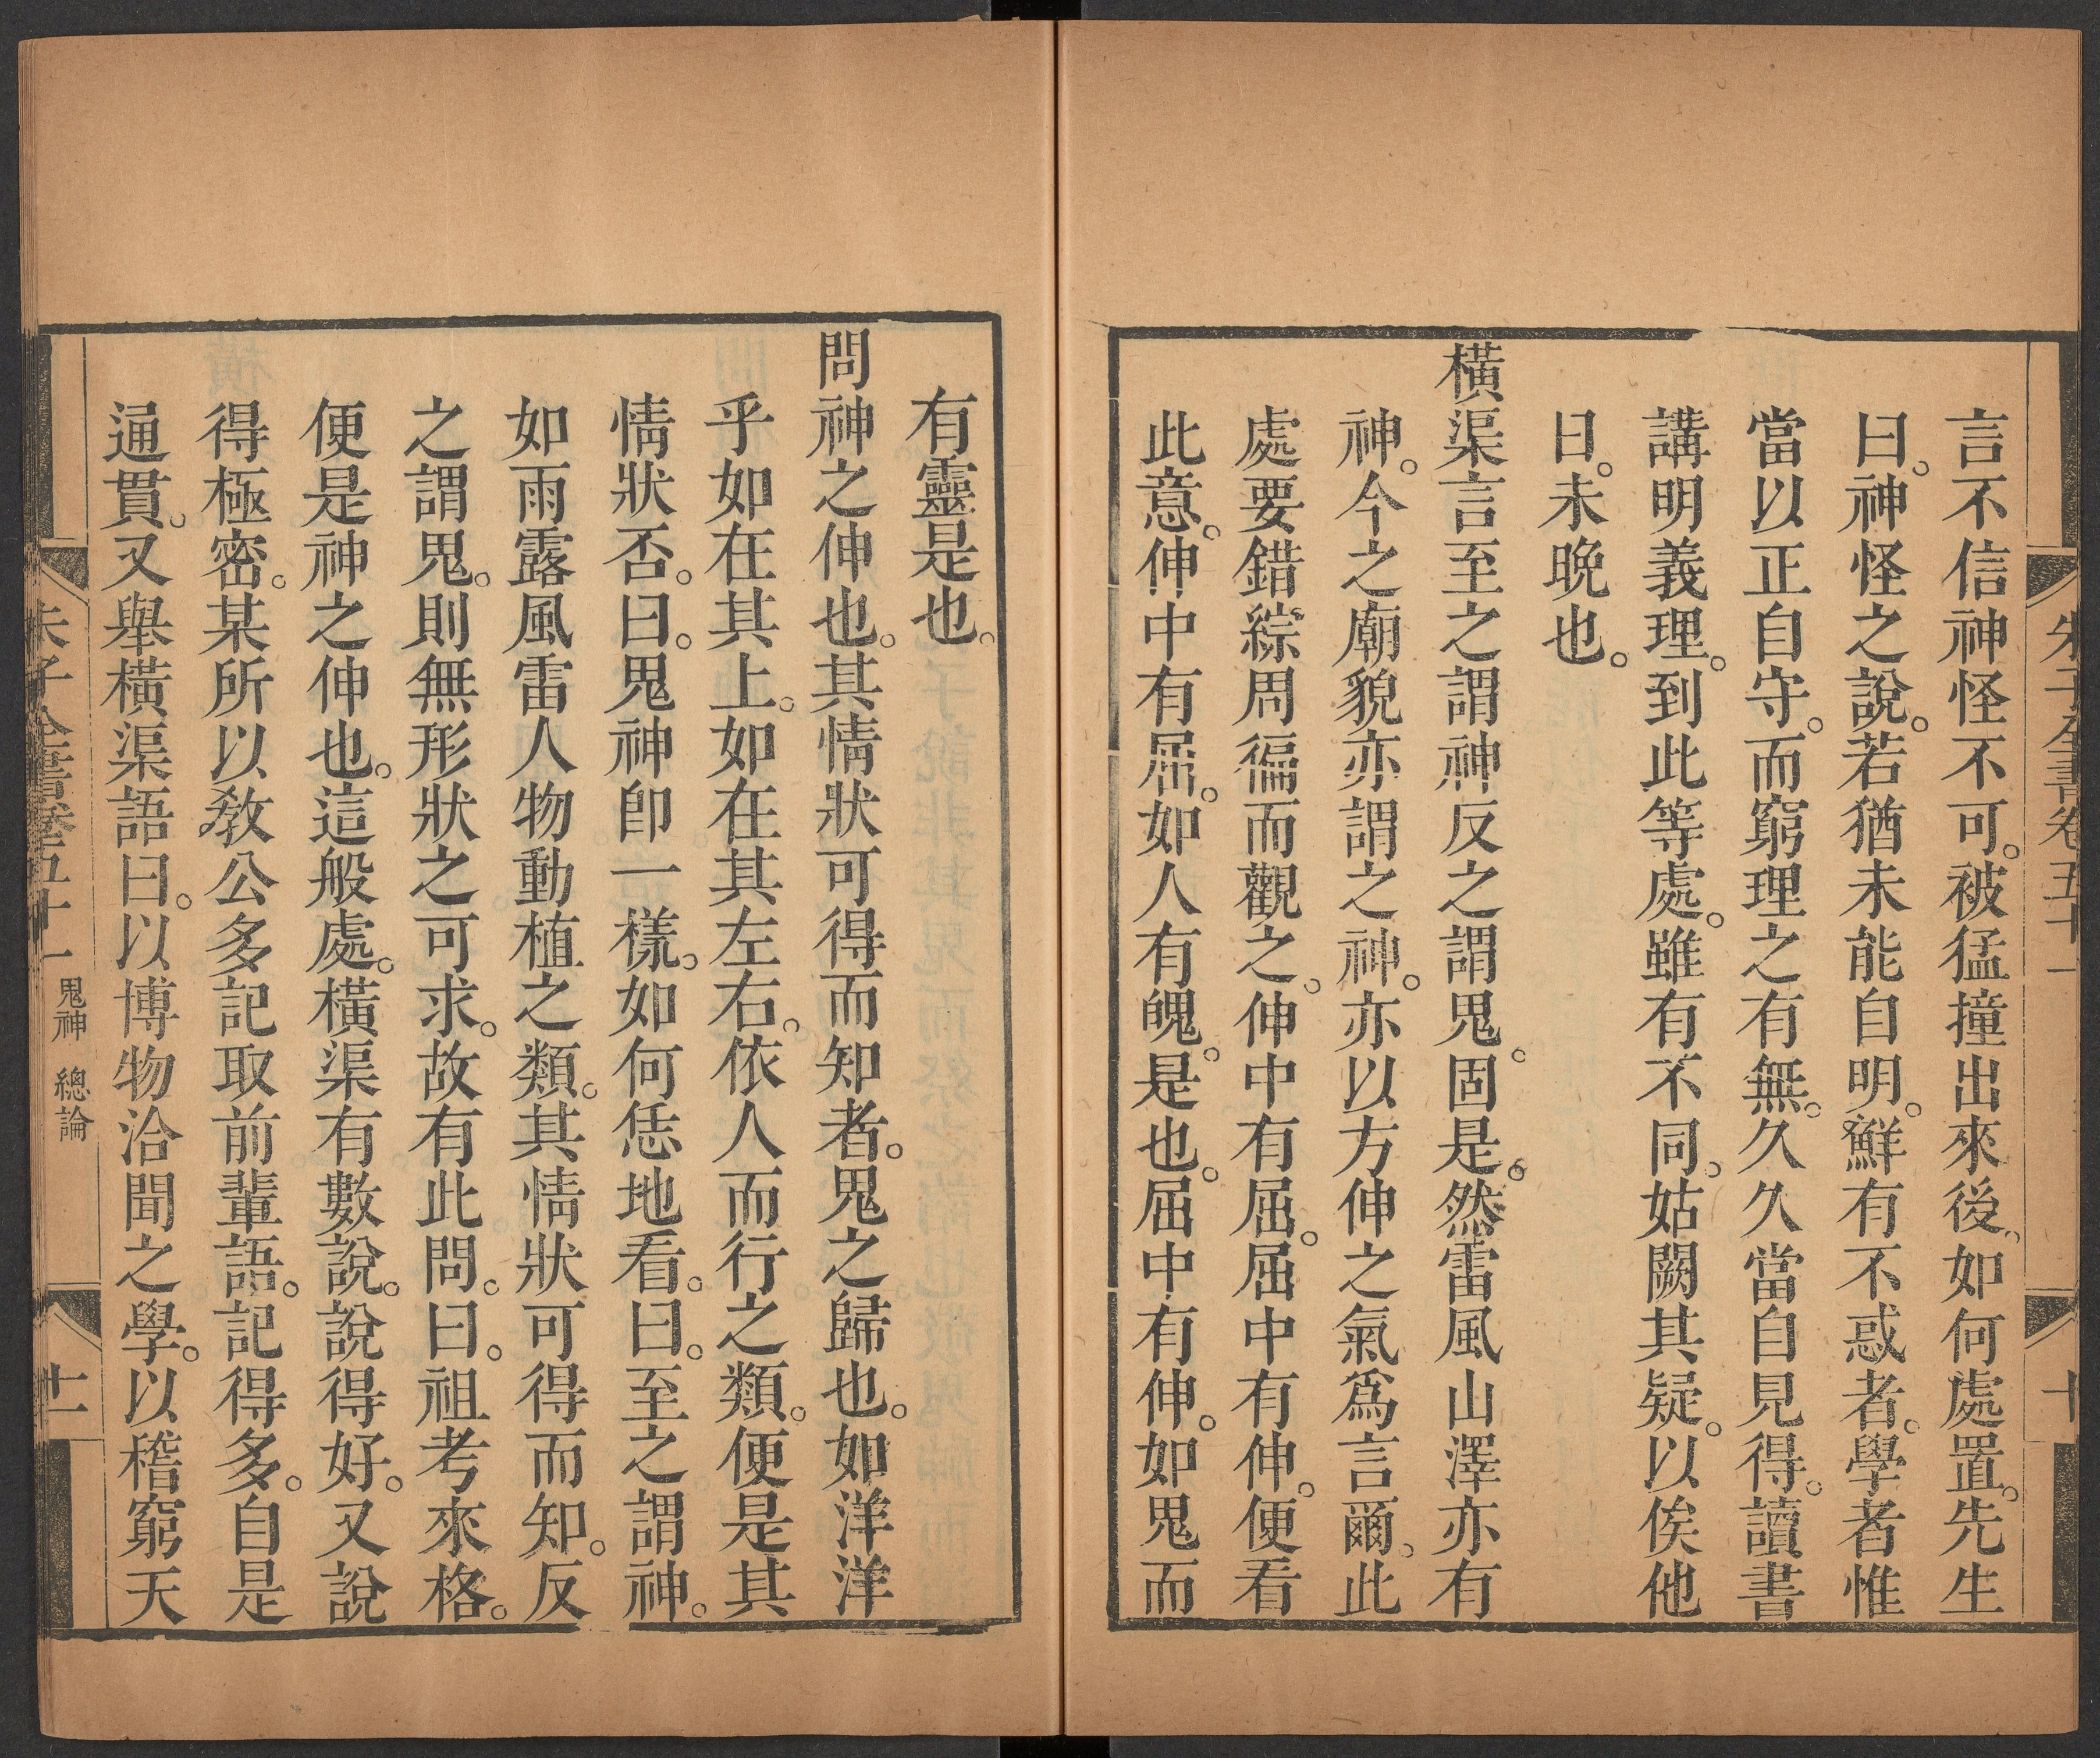 朱子全書卷五十一
十
言不信神怪不可。被猛撞出來後。如何處置。先生
曰。神怪之說。若猶未能自明。鮮有不惑者。學者惟
當以正自守。而窮理之有無。久久當自見得。讀書
講明義理。到此等處。雖有不同。姑闕其疑。以俟他
日。未晚也。
橫渠言至之謂神反之謂鬼。固是。然雷風山澤亦有
神。今之廟貌亦謂之神。亦以方伸之氣爲言爾。此
處要錯綜周徧而觀之。伸中有屈。屈中有伸。便看
此意。伸中有屈。如人有魄。是也。屈中有伸。如鬼而
有靈是也。
問神之伸也。其情狀可得而知者。鬼之歸也。如洋洋
乎如在其上。如在其左右。依人而行之類。便是其
情狀否。曰。鬼神卽一樣。如何恁地看。曰。至之謂神。
如雨露風雷人物動植之類。其情狀可得而知。反
之謂鬼。則無形狀之可求。故有此問。曰。祖考來格。
便是神之伸也。這般處。橫渠有數說。說得好。又說
得極密。某所以敎公多記取前輩語。記得多。自是
通貫。又舉橫渠語曰。以博物洽聞之學。以稽窮天
朱子全書卷五十一 鬼神 總論
十一